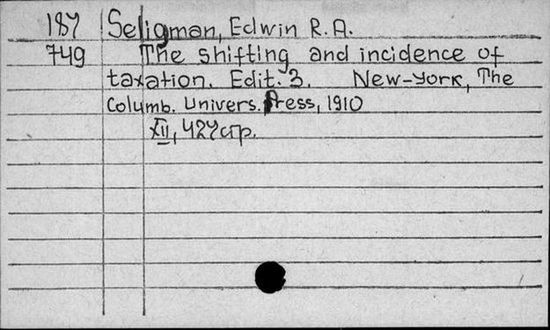 187 Seligman, Edwin R.A.
749 The shifting and incidence of
taxation. Edit. 3. New-York, The
Columb. Univers. Press, 1910
XII, 427 стр.